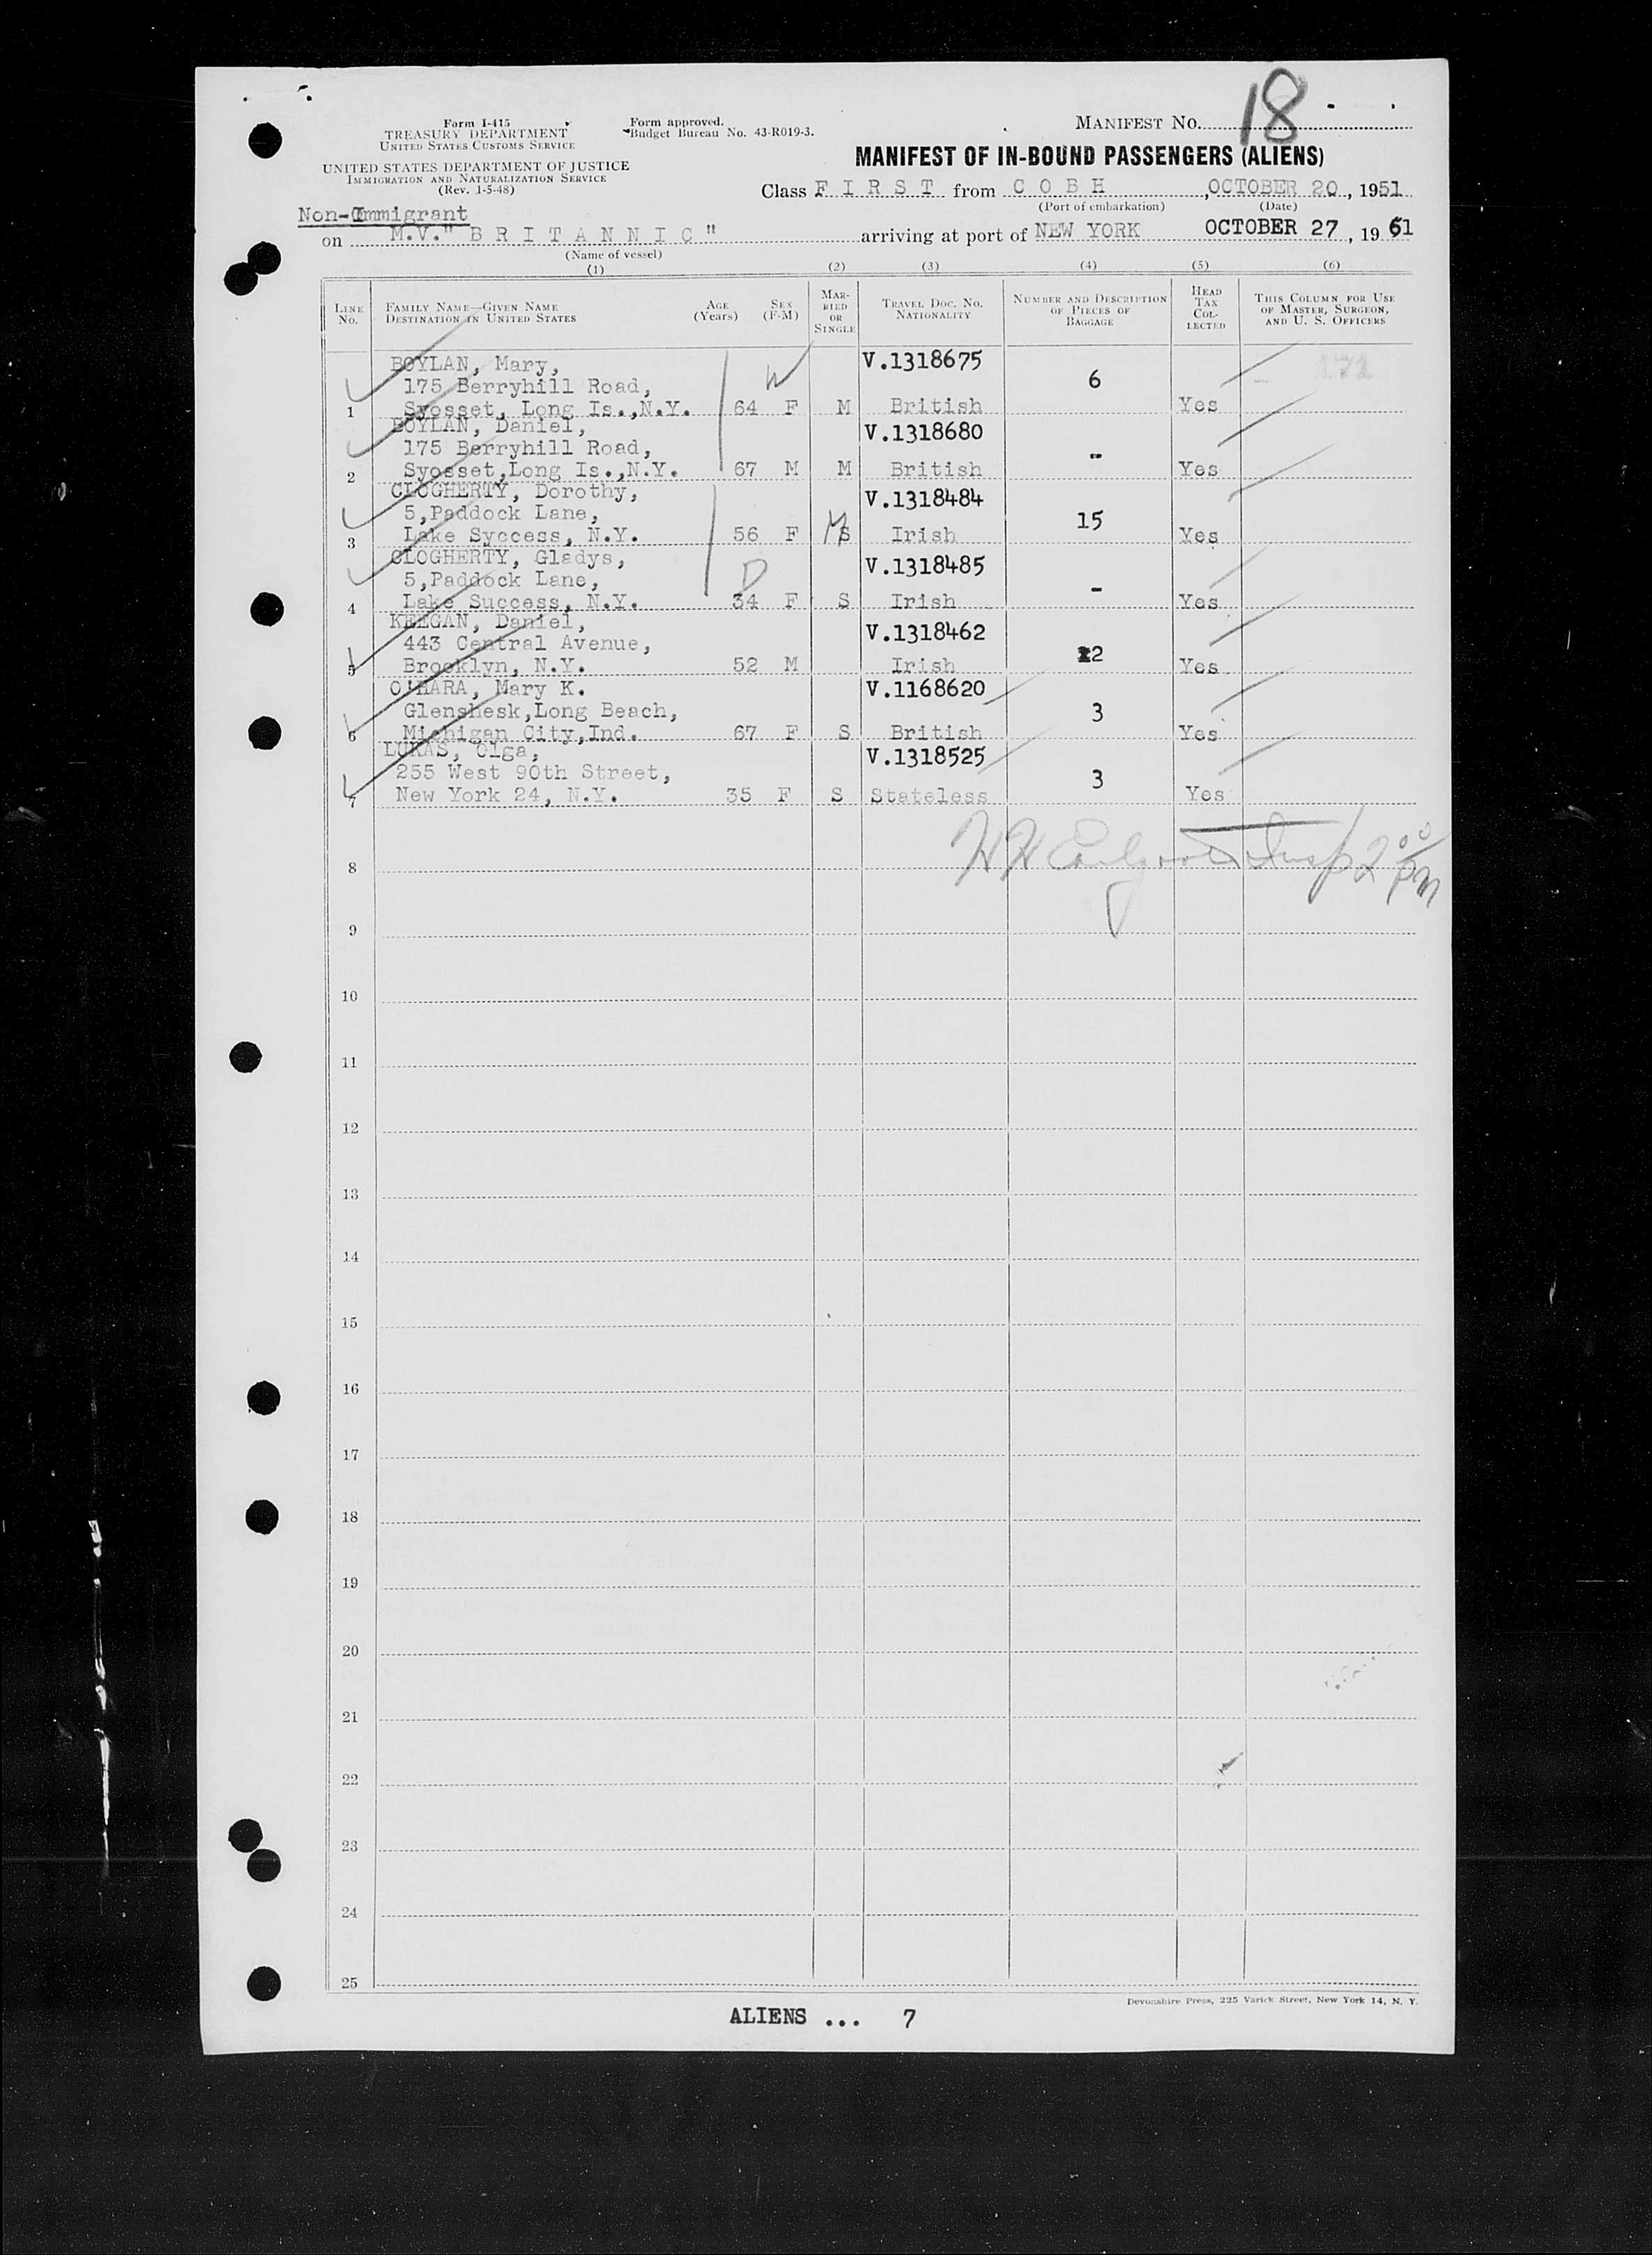 18
Form I-415
TREASURY DEPARTMENT
UNITED STATES CUSTOMS SERVICE
Form approved.
Budget Bureau No. 43-R019-3.
MANIFEST NO.
UNITED STATES DEPARTMENT OF JUSTICE
IMMIGRATION AND NATURALIZATION SERVICE
(Rev. 1-5-48)
MANIFEST OF IN-BOUND PASSENGERS (ALIENS)
Class F I R S T from C O B H, OCTOBER 20, 1951
(Port of embarkation) (Date)
Non-Immigrant
on M.V." B R I T A N N I C " arriving at port of NEW YORK OCTOBER 27, 19 51
(Name of vessel)
(1) (2) (3) (4) (5) (6)
LINE NO.
FAMILY NAME—GIVEN NAME
DESTINATION IN UNITED STATES
AGE (Years)
SEX (F-M)
MARRIED OR SINGLE
TRAVEL DOC. NO. NATIONALITY
NUMBER AND DESCRIPTION OF PIECES OF BAGGAGE
HEAD TAX COLLECTED
THIS COLUMN FOR USE OF MASTER, SURGEON, AND U. S. OFFICERS
BOYLAN, Mary, V.1318675
175 Berryhill Road, W 6 171
1 Syosset, Long Is.,N.Y. 64 F M British Yes
BOYLAN, Daniel, V.1318680
175 Berryhill Road, -
2 Syosset,Long Is.,N.Y. 67 M M British Yes
CLOGHERTY, Dorothy, V.1318484
5,Paddock Lane, 15
3 Lake Syccess, N.Y. 56 F M S Irish Yes
CLOGHERTY, Gladys, V.1318485
5,Paddock Lane, D -
4 Lake Success, N.Y. 34 F S Irish Yes
KEEGAN, Daniel, V.1318462
443 Central Avenue, 2
5 Brooklyn, N.Y. 52 M Irish Yes
O'HARA, Mary K. V.1168620
Glenshesk,Long Beach, 3
6 Michigan City,Ind. 67 F S British Yes
LUKAS, Olga, V.1318525
255 West 90th Street, 3
7 New York 24, N.Y. 35 F S Stateless Yes
Insp 2 00 PM
8
9
10
11
12
13
14
15
16
17
18
19
20
21
22
23
24
25
Devonshire Press, 225 Varick Street, New York 14, N. Y.
ALIENS ... 7